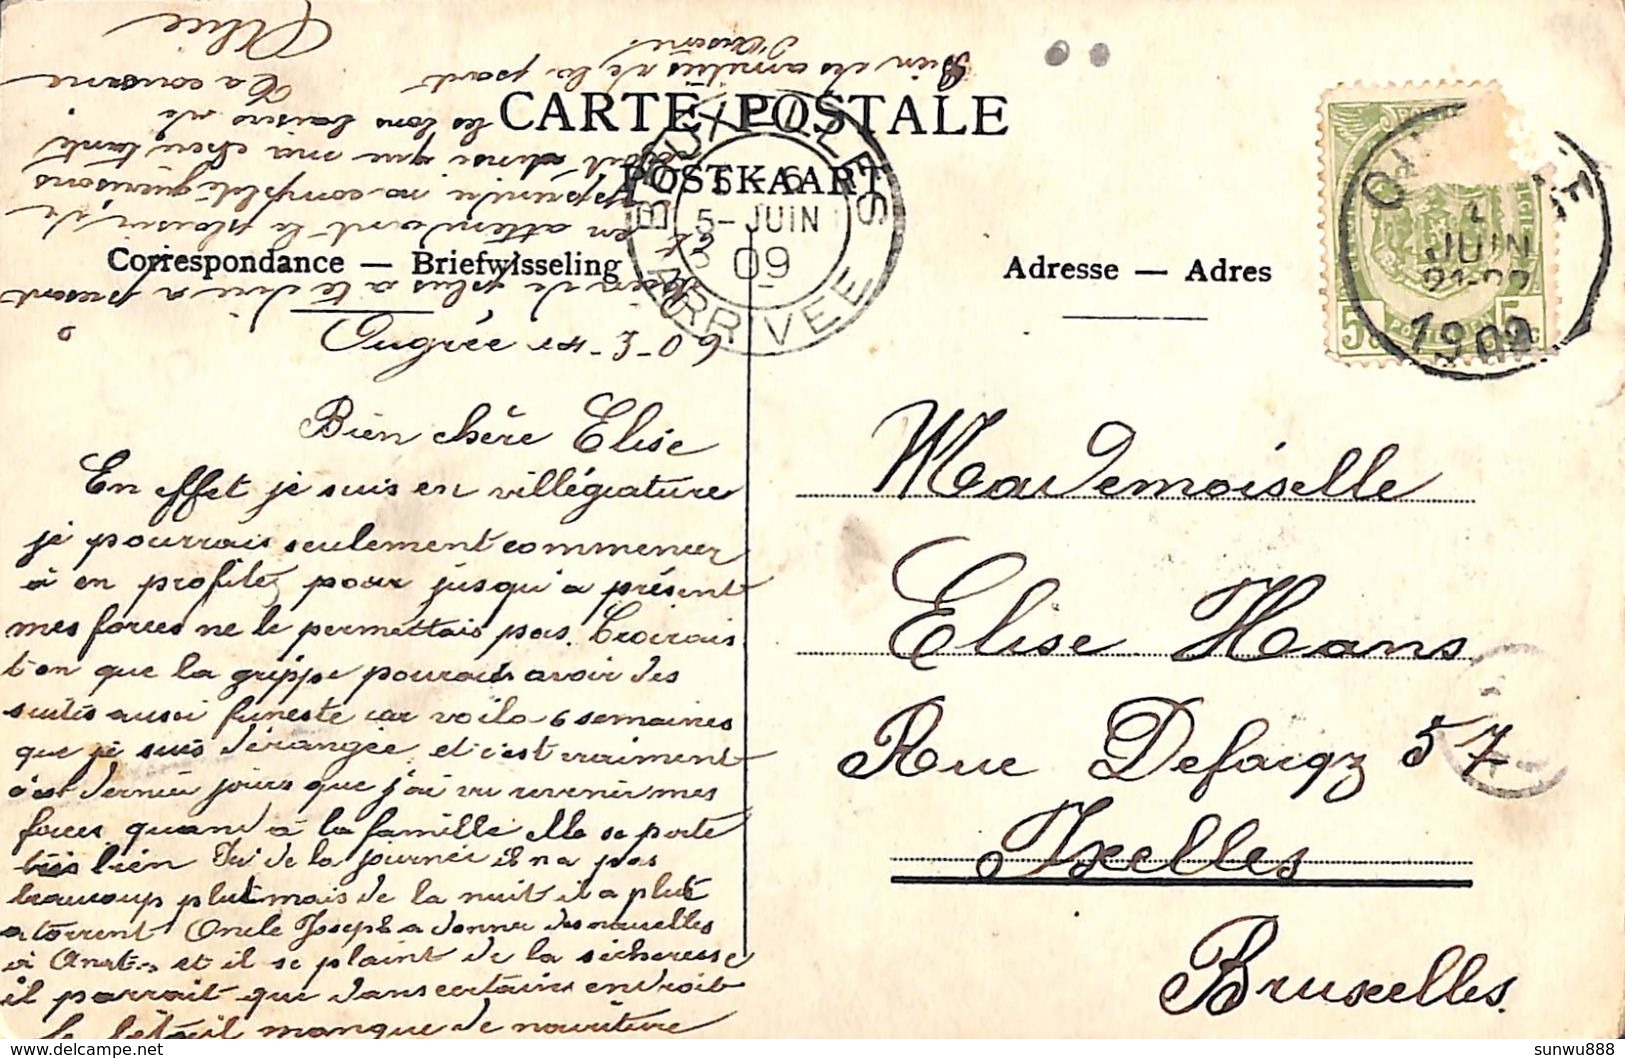 CARTE POSTALE
POSTKAART
Correspondance — Briefwisseling
Adresse — Adres
BRUXELLES
5-6
5- JUIN
09
ARRIVEE
JUIN
21-22
1909
5c
5c
Ougrée
3-09
Bien chère Elise
En effet je suis en villégiature
je pourrais seulement commencer
à en profiter, pour jusqu'a présent
mes forces ne le permettais pas. Croirais
t'on que la grippe pourrais avoir des
suites aussi funeste car voila 6 semaines
que je suis dérangée et c'est vraiment
dernier jours que j'ai vu revenir mes
forces, quand à la famille elle se porte
très bien Ici de la journée il n'a pas
beaucoup plut mais de la nuit il a plut
a torrent Oncle Joseph a donner des nouvelles
à et il se plaint de la sicheresse
il parrait que dans certains endroit
le bétail manque de nouriture
Rien de plus a te dire a present
en attendant le plaisir de
t'apprendre ma complète guérisons
ainsi que ma chère tante
les bons baisers de
Ta cousine
Alice
Bien des amitiés de la part
Mademoiselle
Elise Hans
Rue Defacqz 57
Ixelles
Bruxelles.
sunwu888